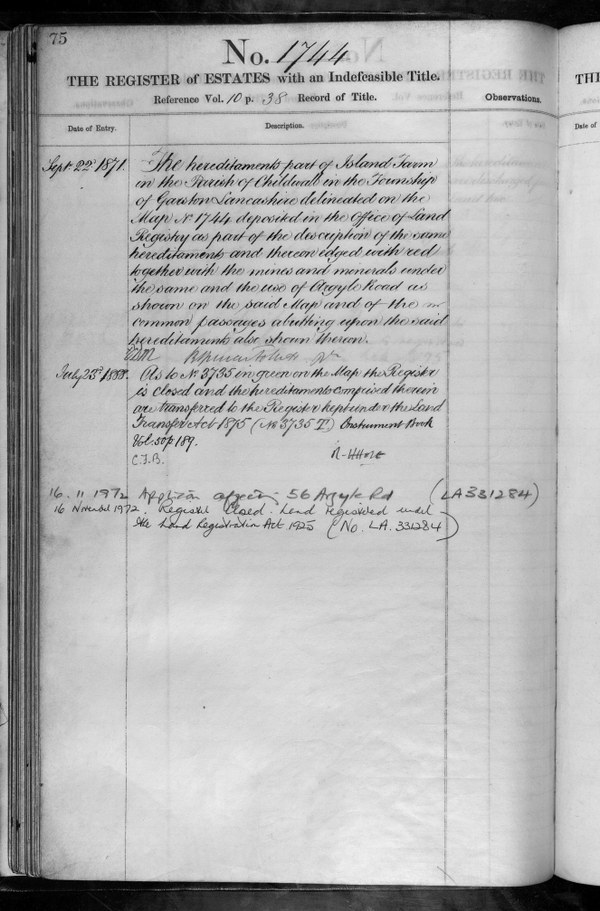 75
No. 1744
THE REGISTER of ESTATES with an Indefeasible Title.
Reference Vol. 10 p. 38 Record of Title.
Observations.
Date of Entry.
Description.
Sept 22d 1871.
The hereditaments part of Island Farm
in the Parish of Childwall in the Township
of Garston Lancashire delineated on the
Map No 1744 deposited in the Office of Land
Registry as part of the description of the same
hereditaments and thereon edged with red
together with the mines and minerals under
the same and the use of Argyle Road as
shown on the said Map and of the
common passages abutting upon the said
hereditaments also shown thereon.
July 23d
As to No 3735 in green on the Map the Register
is closed and the hereditaments comprised therein
are transferred to the Register kept under the Land
Transfer Act 1875 (No 3735 T) Instrument Book
Vol. 50 p 189.
C.F.B.
16. 11 1972 Applicon affecting 56 Argyle Rd (LA 331284)
16 November 1972. Register closed. Land registered under
the Land Registration Act 1925 (No. LA. 331284)
TH
Date of